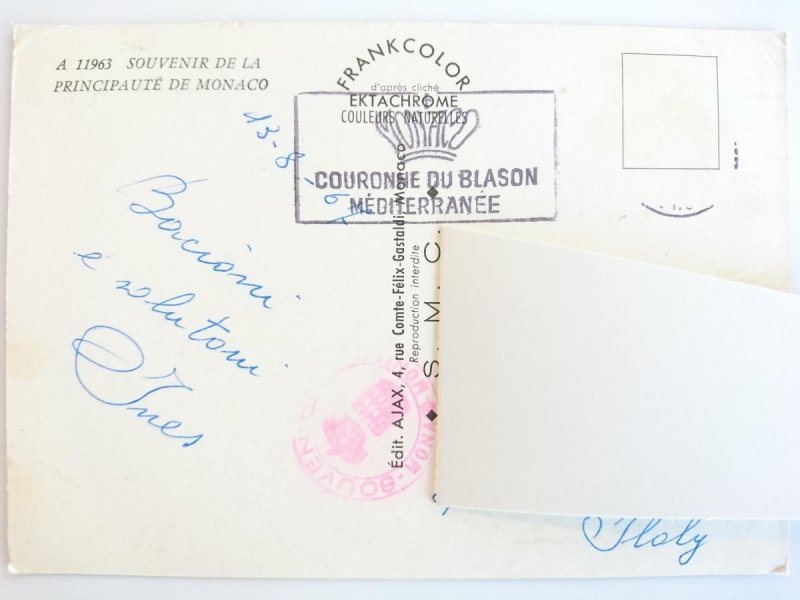 A 11963 SOUVENIR DE LA
PRINCIPAUTÉ DE MONACO
FRANKCOLOR
d'après cliché
EKTACHROME
COULEURS NATURELLES
MONACO
COURONNE DU BLASON
MÉDITERRANÉE
13-8-
Bacioni
e salutoni
Ines
Édit. AJAX, 4, rue Comte-Félix-Gastaldi-Monaco
Reproduction interdite
S. M. C.
SOUVENIR
Italy